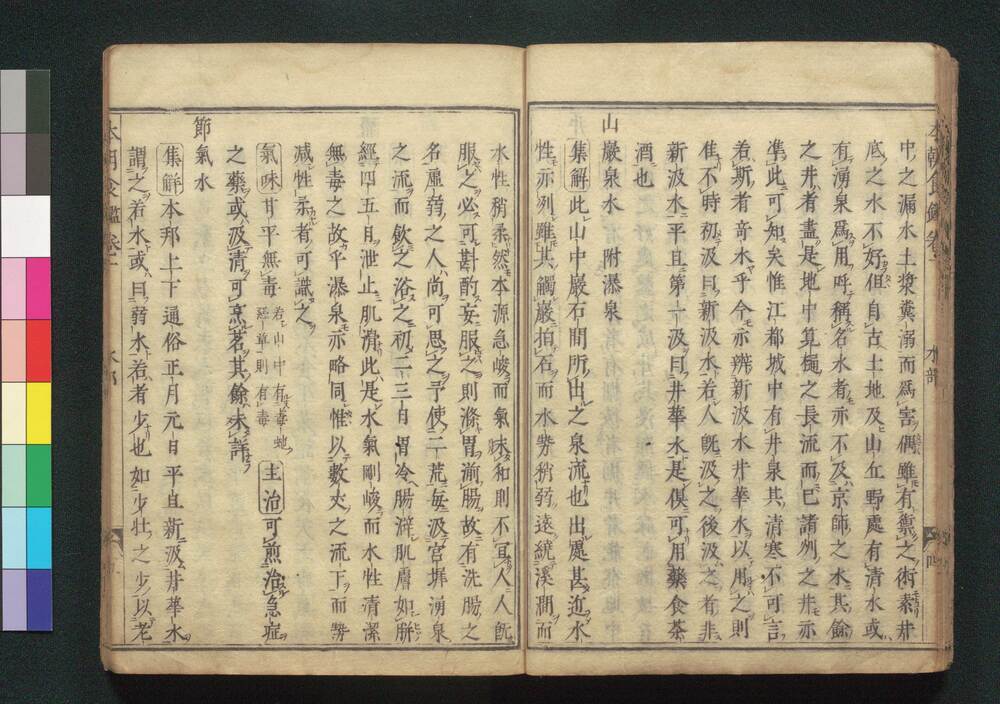 中之漏水土漿糞溺而爲害偶雖有禦之術素井
底之水不好但自古土地及山丘野處有清水或
有湧泉爲用呼稱名水者亦不及京師之水其餘
之井者盡是地中筧樋之長流而已諸列之井亦
準此可知矣惟江都城中有井泉其清寒不可言
者斯者奇水乎今亦辨新汲水井華水以用之則
隹不時初汲曰新汲水若人既汲之後汲之者非
新汲水平旦第一汲曰井華水是俱可用藥食茶
酒也
山巖泉水 附瀑泉
集解此山中巖石間所出之泉流也出處甚近水
性亦列雖其觸巖拍石而水勢稍弱遠繞溪澗而
水性稍柔然本源急峻而氣味和則不宜人人既
服之必可斟酌妄服之則滌胃湔腸故有洗腸之
名虛弱之人尚可思之予使二荒每汲宮墀湧泉
之流而飲之浴之初二三日胃冷腸澼肌膚如胼
經四五月泄止肌滑此是水氣剛峻而水性清潔
無毒之故乎瀑泉亦略同惟以數丈之流下而勢
減性柔者可識之
氣味甘平無毒 若山中有毒蛇經草則有毒 主治可煎治急症
之藥或汲清可烹茗其餘未詳
節氣水
集解本邦上下通俗正月元日平旦新汲井華水
謂之若水或曰弱水若者少也如少壯之少以老
水部
四
本朝食鑑 卷一